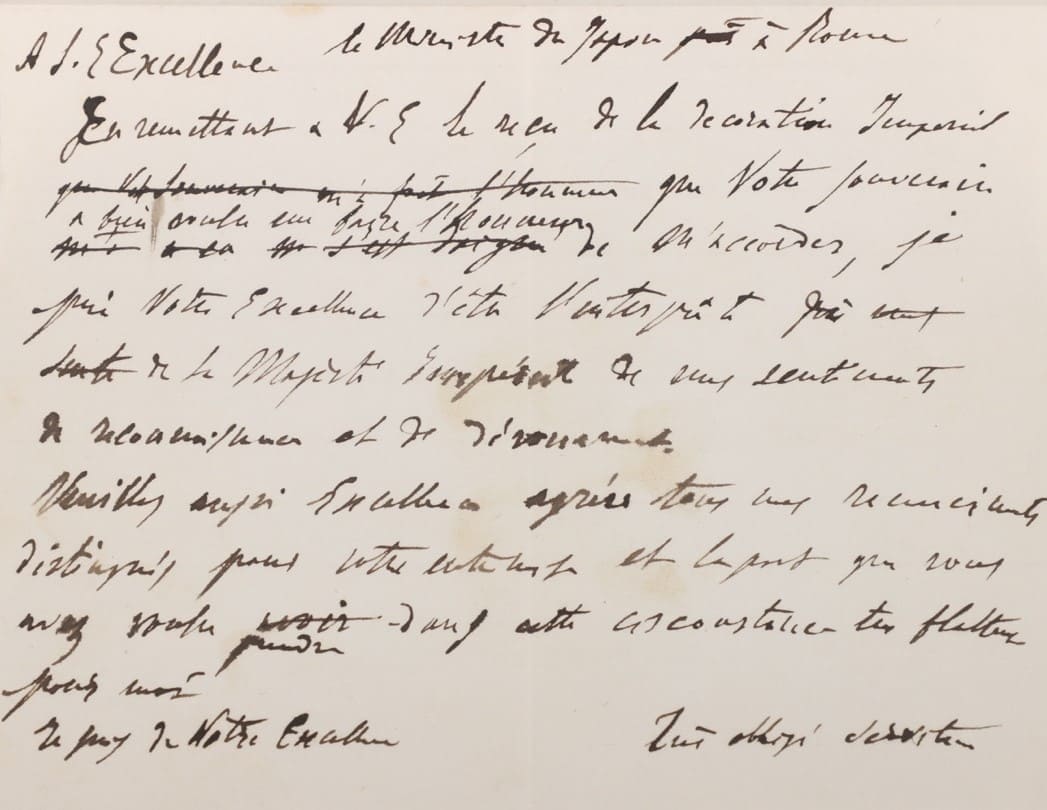 A S. E Excellence le Ministre du Japon près à Rome
En remettant a V. E le reçu de la decoration Imperial
que Votre Souverain m'a fait l'honneur que Votre Souverain
a bien voulu me faire l'honneur
m'a s'est daigné de m'accorder, je
prie Votre Excellence d'être l'interprête
de Sa Majesté Imperial de mes sentiments
de reconnaissance et de dévouement.
Veuillez aussi Excellence agréer tous mes remerciments
distingués pour votre entremise et la part que vous
avez voulu avoir dans cette circonstance très flatteuse
prendre
pour moi
Je suis de Votre Excellence Très obligé serviteur